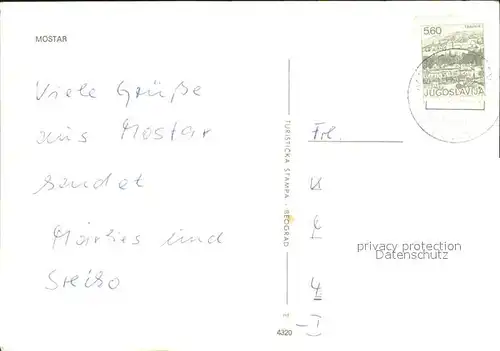 MOSTAR
5,60
TRAVNIK
JUGOSLAVIJA
Viele Grüße
aus Mostar
sendet
Marlies und
TURISTIČKA ŠTAMPA - BEOGRAD
4320
Frl.
privacy protection
Datenschutz